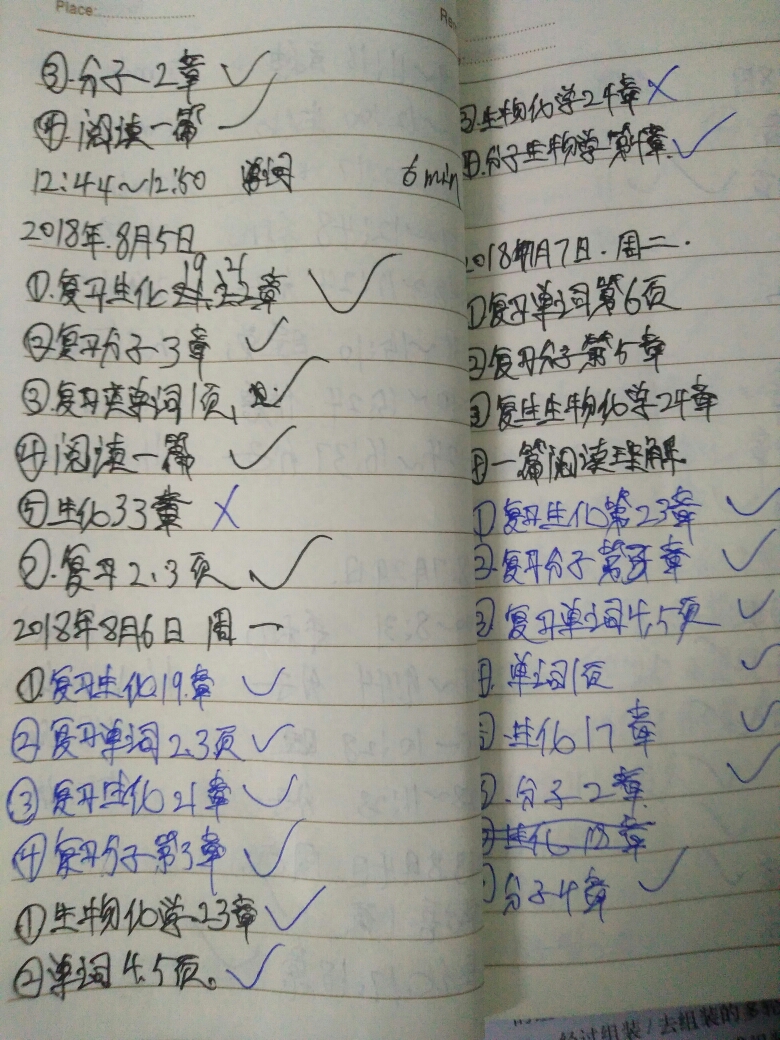 Place:
③.分子2章 ✓
④.阅读一篇 ✓
12:44~12:50 单词 6min
2018年.8月5日
①.复习生化 19. 21章 ✓
②复习分子3章 ✓
③复习英单词1页, ✓
④阅读一篇 ✓
⑤生化33章 ×
②.复习2.3页 ✓
2018年8月6日 周一
①.复习生化19.章 ✓
②复习单词2.3页 ✓
③复习生化21章 ✓
④复习分子第3章 ✓
①生物化学23章 ✓
②单词4.5页。 ✓
③.生物化学24章 ×
④.分子生物学第4章. ✓
2018年8月7日.周二.
①复习单词第6页
②复习分子第5章
③复生生物化学24章
④一篇阅读理解.
①复习生化第23章 ✓
②复习分子第章 ✓
③复习单词4.5页 ✓
④.单词1页 ✓
生化17章 ✓
.分子2章. ✓
生化18章
分子4章 ✓
经过组装/去组装的多轮